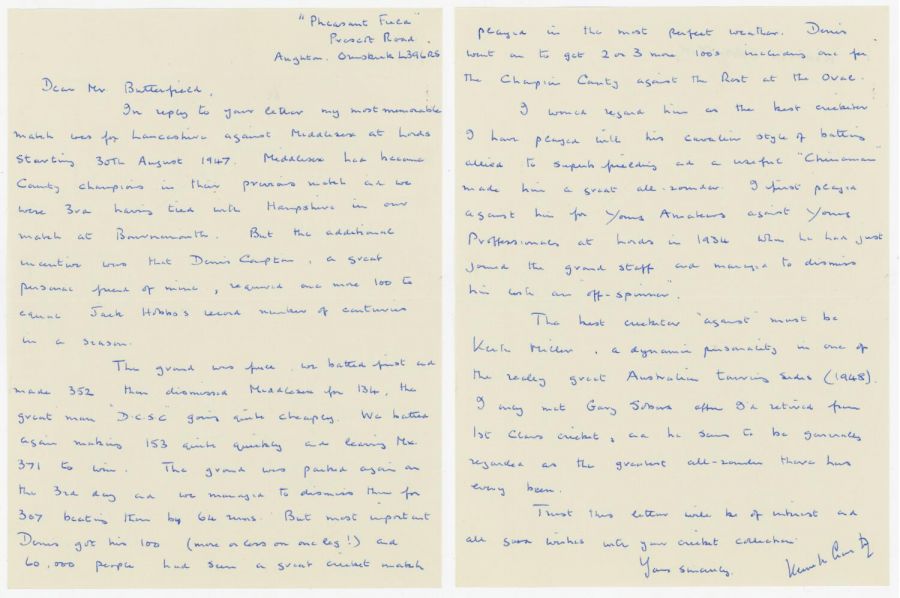 "Pheasant Field"
Prescot Road.
Aughton. Ormskirk L39 6RS
Dear Mr. Butterfield,
In reply to your letter my most memorable
match was for Lancashire against Middlesex at Lords
starting 30th August 1947. Middlesex had become
County champions in their previous match and we
were 3rd having tied with Hampshire in our
match at Bournemouth. But the additional
incentive was that Denis Compton, a great
personal friend of mine, required one more 100 to
equal Jack Hobbs's record number of centuries
in a season.
The ground was full. We batted first and
made 352 then dismissed Middlesex for 134, the
great man "D.C.S.C" going quite cheaply. We batted
again making 153 quite quickly and leaving Mx.
371 to win. The ground was packed again on
the 3rd day and we managed to dismiss them for
307 beating them by 64 runs. But most important
Denis got his 100 (more or less on one leg!) and
60,000 people had seen a great cricket match
played in the most perfect weather. Denis
went on to get 2 or 3 more 100s including one for
the Champion County against the Rest at the Oval.
I would regard him as the best cricketer
I have played with his cavalier style of batting
allied to superb fielding and a useful "Chinaman"
made him a great all-rounder. I first played
against him for Young Amateurs against Young
Proffessionals at Lords in 1934 when he had just
joined the ground staff and managed to dismiss
him with an "off-spinner".
The best cricketer "against" must be
Keith Miller, a dynamic personality in one of
the really great Australian touring sides (1948).
I only met Gary Sobers after I'd retired from
1st Class cricket, and he seems to be generally
regarded as the greatest all-rounder there has
every been.
Trust this letter will be of interest and
all good wishes with your cricket collection
Yours sincerely.